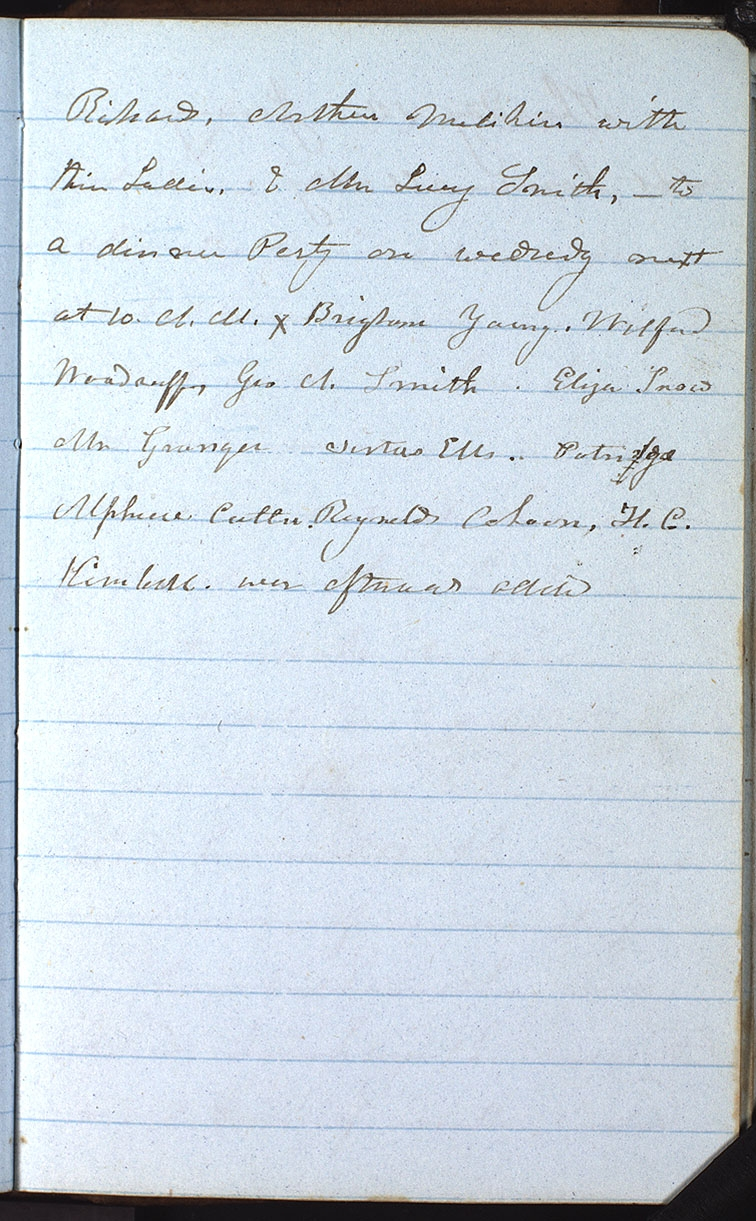 Richard, Arthur Milikin with
thier Ladies. & Mrs Lucy Smith, — to
a dinner Party on wednedy next
at 10. A. M. x Brigham Young. Wilford
Woodruff, Geo A. Smith. Eliza Snow
Mrs Granger sister Ells.. Patridge
Alpheus Cutler. Reynolds Cahoon, H. C.
Kimball. were afterwards added